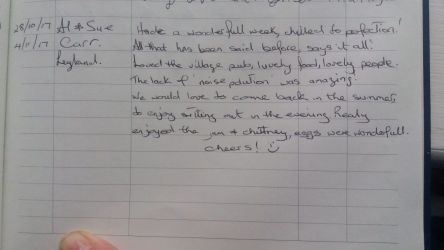 28/10/17 Al & Sue Had a wonderfull week, chilled to perfection!
4/11/17 Carr. All that has been said before, says it all!
Leyland. Loved the village pubs, luvely food, lovely people.
The lack of 'noise polution' was amazing.
We would love to come back in the summer,
to enjoy sitting out in the evening. Really
enjoyed the jam & chuttney, eggs were wonderfull.
cheers! ☺